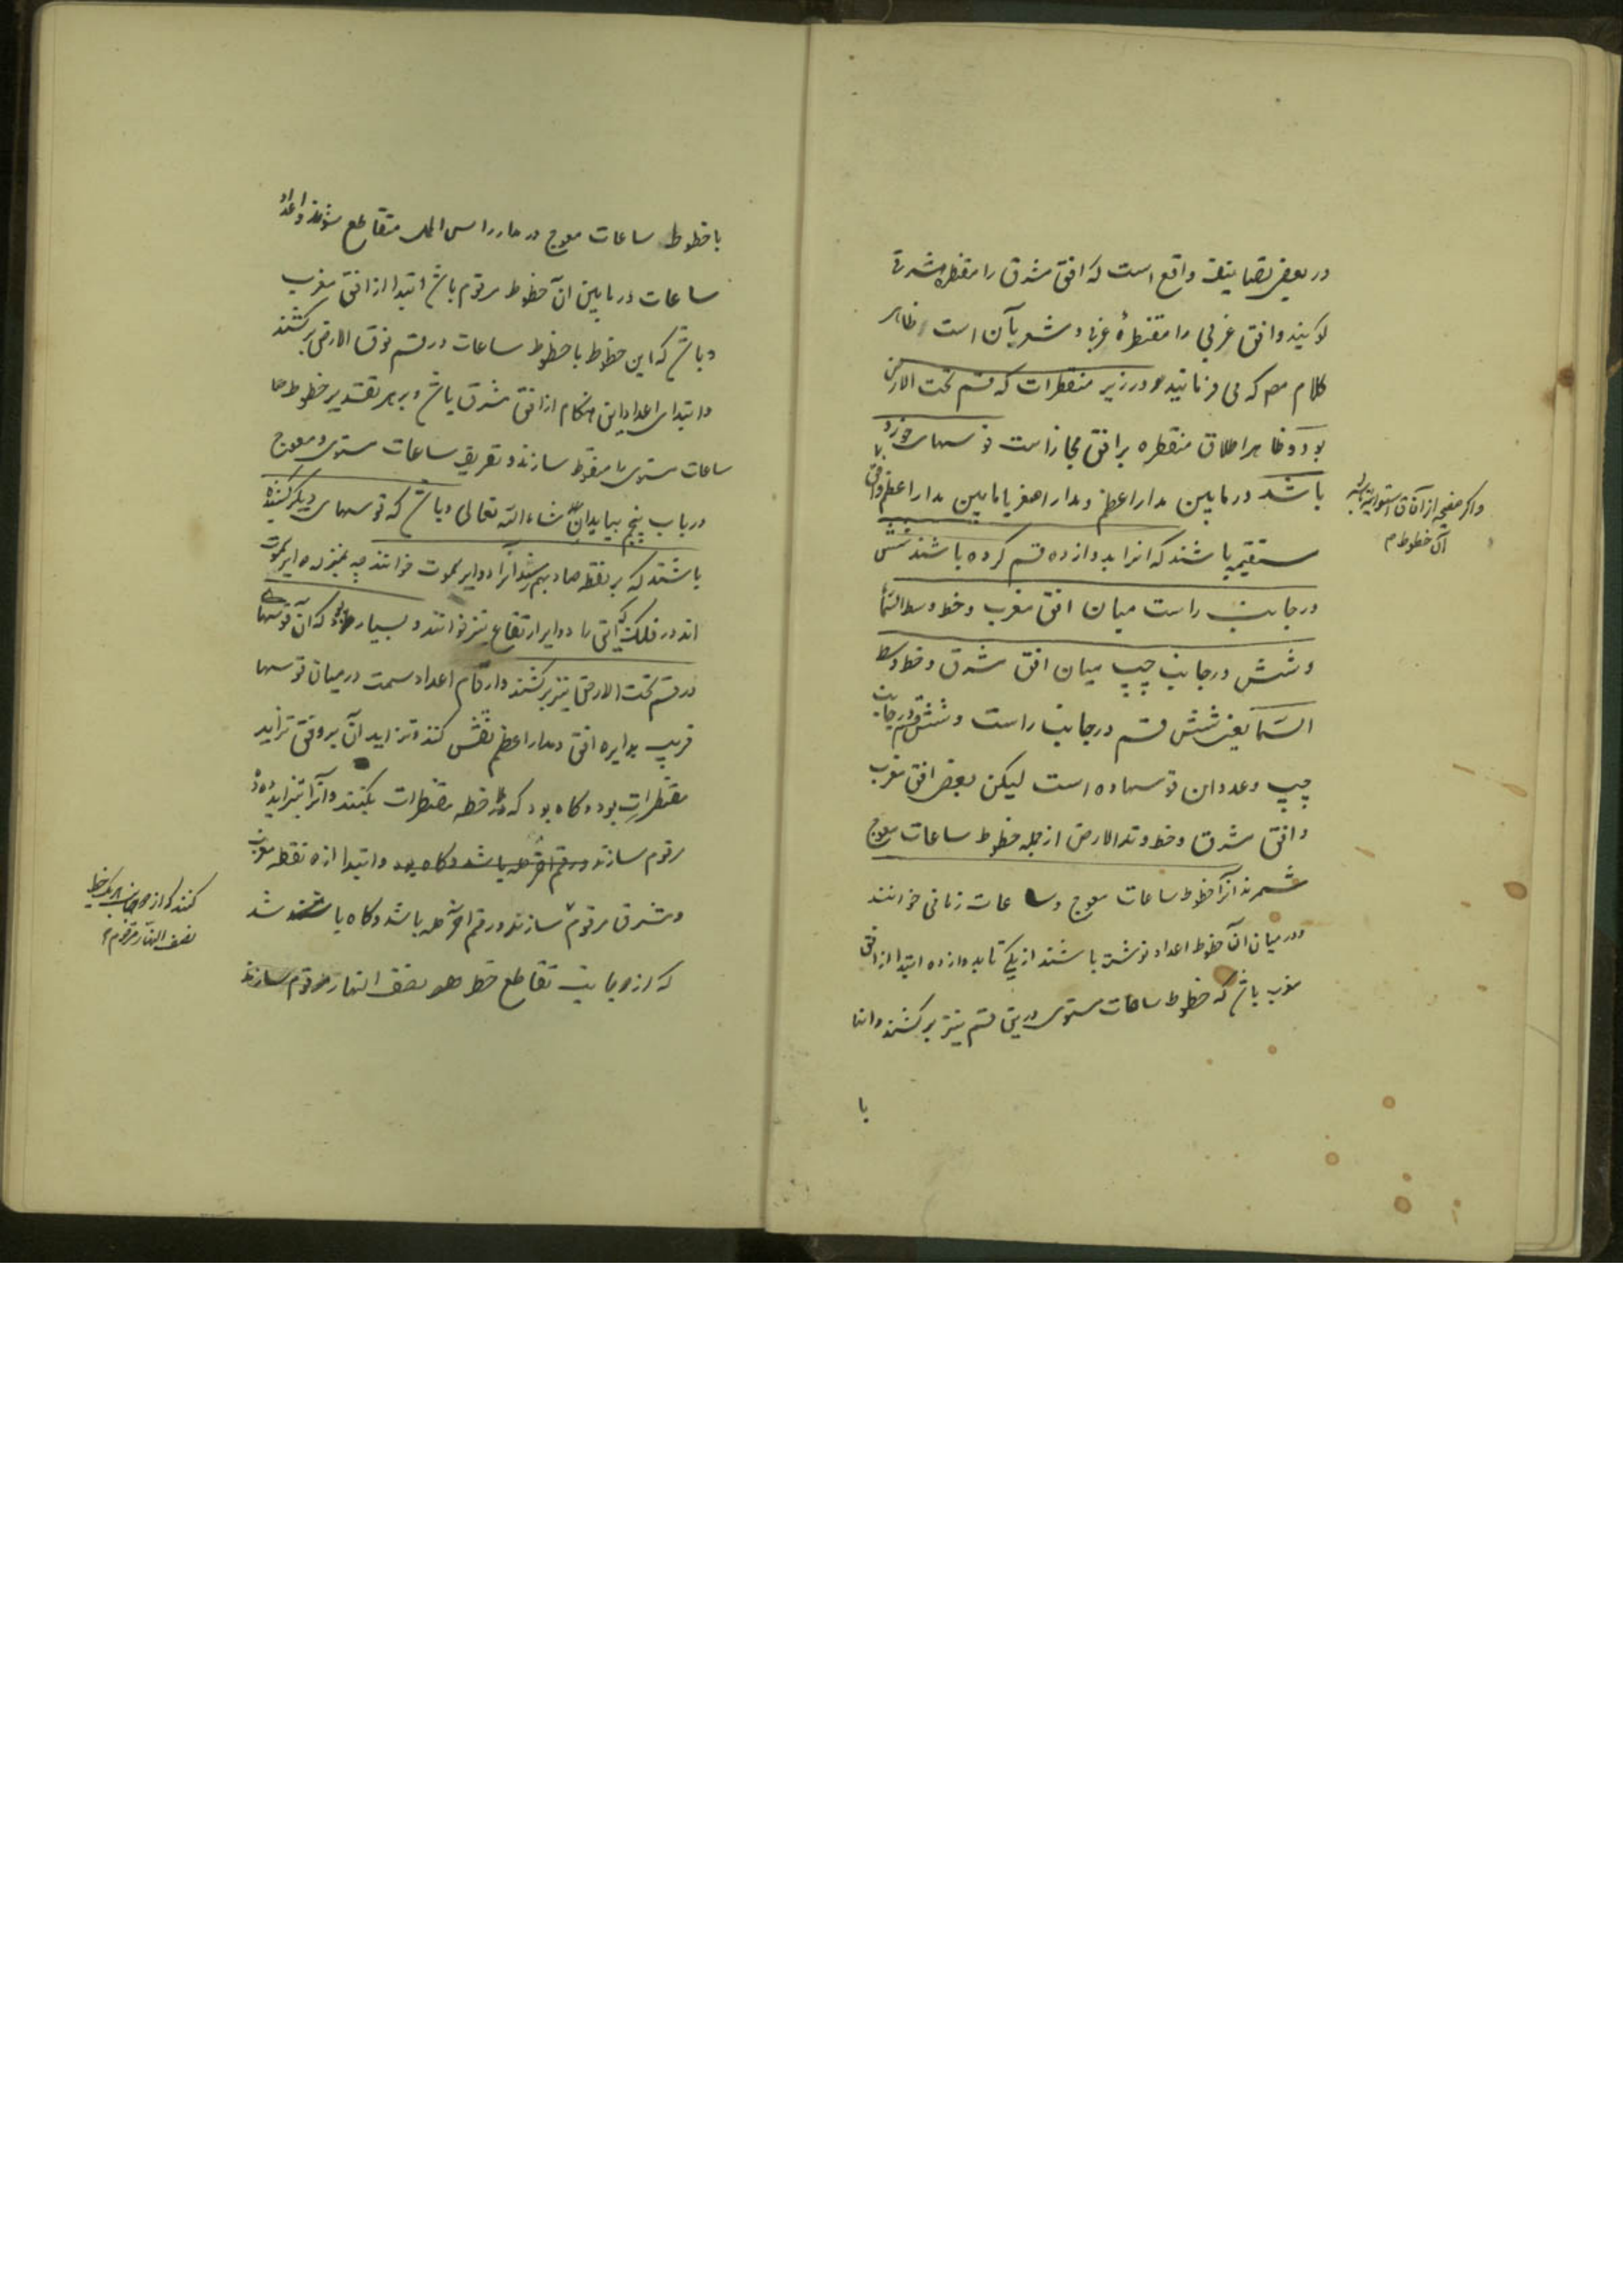 در بعضی تصانیف واقع است که افق مشرق را مقنطره شرقی
کویند و افق غربی را مقنطرهٔ غربا و مشعر بآن است ظاهر
کلام مص که می فرمایند و در زیر مقنطرات که قسم تحت الارض
بود و ظاهر اطلاق مقنطره بر افق مجاز است قوسهای خورد
باشد در مابین مدار اعظم و مدار اصغر یا مابین مدار اعظم و افق
مستقیم باشند که انرا بدوازده قسم کرده باشند شش
در جانب راست میان افق مغرب و خط وسط السما
و شش در جانب چپ میان افق مشرق و خط وسط
السما یعنی شش قسم در جانب راست و شش قسم در جانب
چپ و عدد ان قوسها ده است لیکن بعضی افق مغرب
و افق مشرق و خط وتد الارض از جمله خطوط ساعات معوج
شمرند انرا خطوط ساعات معوج و ساعات زمانی خوانند
و در میان ان خطوط اعداد نوشته باشند از یکی تا بدوازده ابتدا از افق
مغرب باشد که خطوط ساعات مستوی درین قسم نیز برکشند و انها
با
واکر صفیحه از آفاق استوائیه باشد
آن خطوط م
با خطوط ساعات معوج در مدار راس الحمل متقاطع شوند و اعداد
ساعات در مابین ان خطوط مرقوم باشد ابتدا از افق مغرب
و باشد که این خطوط با خطوط ساعات در قسم فوق الارض برکشند
و ابتدای اعداد این هنکام از افق مشرق باشد و بر هر تقدیر خطوط
ساعات مستوی را منقوط سازند و تعریف ساعات مستوی و معوج
در باب پنجم بیاید ان شاء الله تعالی و باشد که قوسهای دیکر کشیده
باشند که بر نقطه صاد بهم رسند آنرا دوایر سموت خوانند چه بمنزله دوایر سموت
اند در فلک که آن را دوایر ارتفاع نیز خوانند و بسیار بود که آن قوسها
در قسم تحت الارض نیز برکشند و ارقام اعداد سمت در میان قوسها
قریب بدایره افق و مدار اعظم نقش کنند و تزاید آن بر وفق تزاید
مقنطرات بود و کاه بود که خط مقنطرات بکنند و آنرا بتزاید
مرقوم سازند و رقم آخر صه باشد و کاه بود و ابتدا از نقطه مغرب
و مشرق مرقوم سازند و رقم آخر صه باشد و کاه باشد
که از جانب تقاطع خط نصف النهار مرقوم سازند
کنند که از جانب هر یک خط
نصف النهار مرقوم